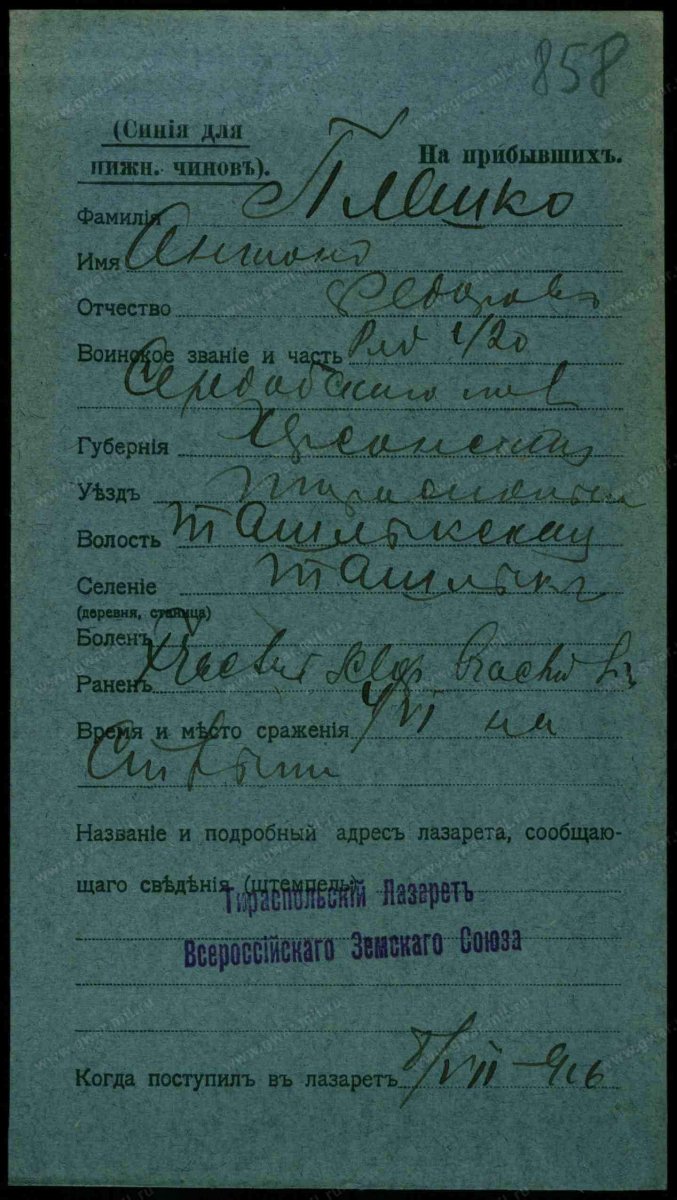 858
(Синія для
нижн. чиновъ).
На прибывшихъ.
Фамилія Плашко
Имя Антонъ
Отчество Федоровъ
Воинское званіе и часть Ряд 4/20
Сердобскаго
Губернія Херсонская
Уѣздъ
Волость Ташлыкская
Селеніе Ташлыкъ
(деревня, станица)
Боленъ V
Раненъ
Время и мѣсто сраженія 4/VI на
Стыри
Названіе и подробный адресъ лазарета, сообщаю-
щаго свѣдѣнія (штемпель)
Тираспольскій Лазаретъ
Всероссійскаго Земскаго Союза
Когда поступилъ въ лазаретъ /VII—916
www.gwar.mil.ru